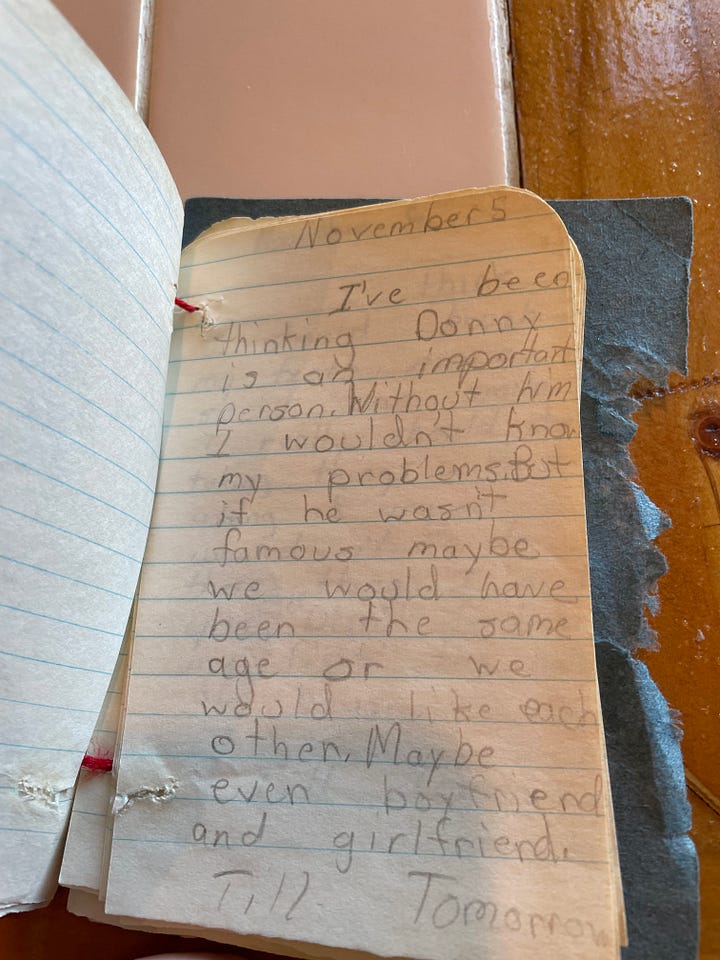 November 5
I've been
thinking Donny
is an important
person. Without him
I wouldn't know
my problems. But
if he wasn't
famous maybe
we would have
been the same
age or we
would like each
other. Maybe
even boyfriend
and girlfriend.
Till Tomorrow